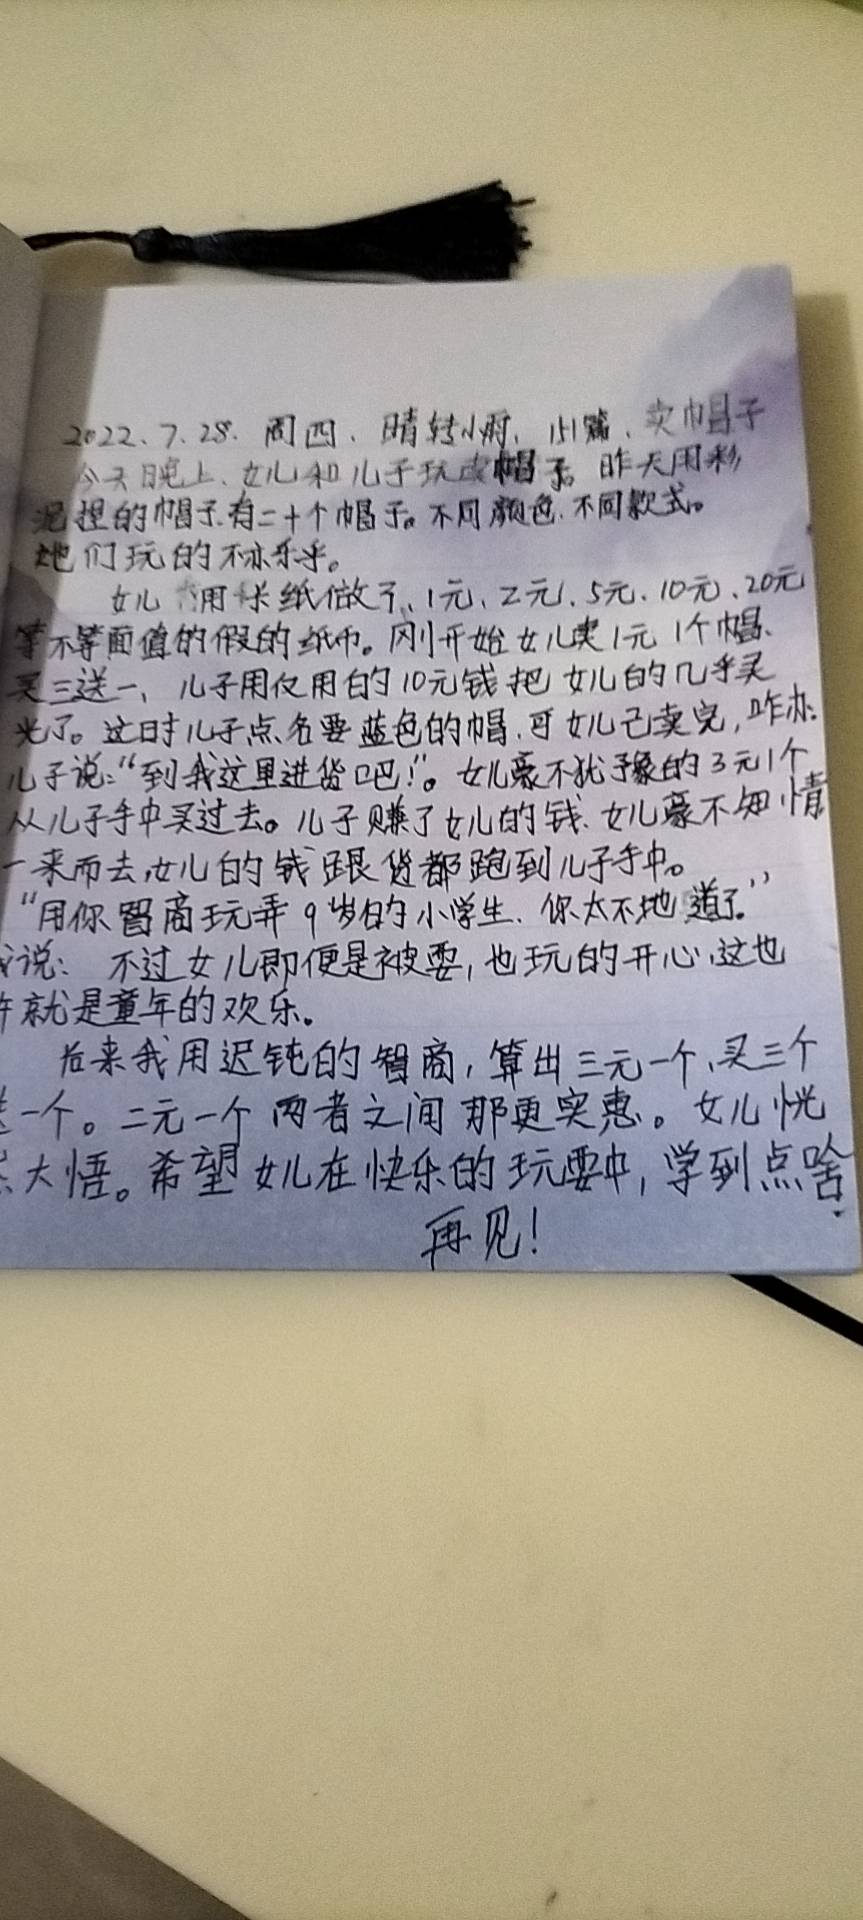 2022、7.28. 周四、晴转小雨、151篇、卖巾冒子
今天晚上、女儿和儿子玩卖帽子。昨天用彩
泥捏的帽子.有二十个帽子。不同颜色.不同款式。
她们玩的不亦乐乎。
女儿 用 纸做了、1元、2元、5元、10元、20元
等不等面值的假的纸币。刚开始女儿卖1元1个帽、
买三送一、儿子用仅用白的10元钱把女儿的几乎买
光了。这时儿子点名要蓝色的帽,可女儿已卖完,咋办:
儿子说:“到我这里进货吧!”。女儿豪不犹予豫的3元1个
从儿子手中买过去。儿子赚了女儿的钱、女儿豪不知情
一来而去,女儿的钱跟货都跑到儿子手中。
“用你智商玩弄9岁的小学生、你太不地道了.”
说: 不过女儿即便是被耍,也玩的开心,这也
许就是童年的欢乐。
后来我用迟钝的智商,算出三元一个、买三个
送一个。二元一个两者之间那更实惠。女儿恍
大悟。希望女儿在快乐的玩耍中,学到点啥.
再见!